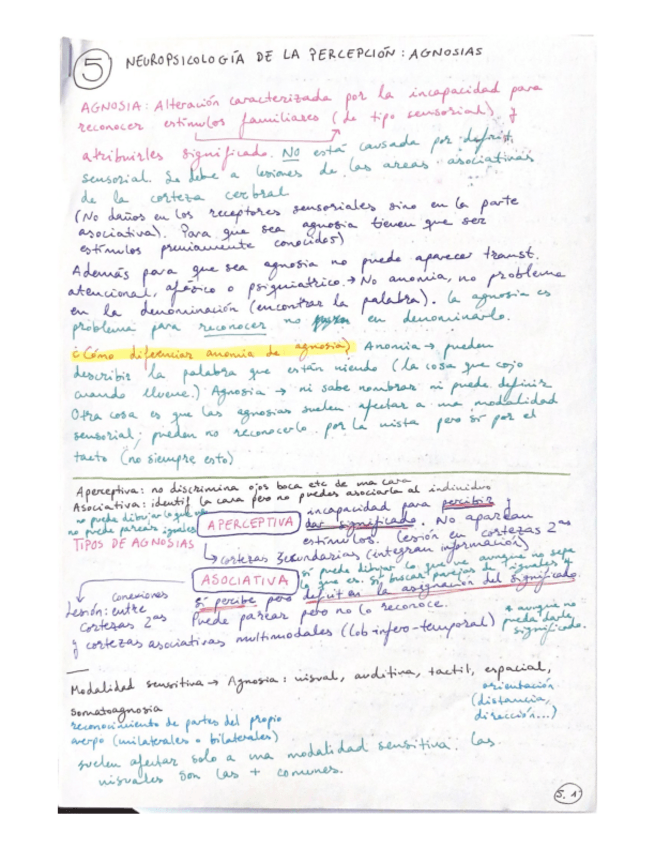 5 NEUROPSICOLOGÍA DE LA PERCEPCIÓN: AGNOSIAS
AGNOSIA: Alteración caracterizada por la incapacidad para
reconocer estímulos familiares (de tipo sensorial) y
atribuirles significado. NO está causada por deficit
sensorial. Se debe a lesiones de las areas asociativas
de la corteza cerbral
(No daños en los receptores sensoriales sino en la parte
asociativa). Para que sea agnosia tienen que ser
estímulos previamente conocidos)
Además para que sea agnosia no puede aparecer transt.
atencional, afásico o psiquiatrico. → No anomia, no problema
en la denominación (encontrar la palabra). La agnosia es
problema para reconocer no en denominarlo.
¿Cómo diferenciar anomia de agnosia? Anomia → pueden
describir la palabra que están viendo (la cosa que cojo
cuando llueve.) Agnosia → ni sabe nombrar ni puede definir
Otra cosa es que las agnosias suelen afectar a una modalidad
sensorial; pueden no reconocerlo por la vista pero sí por el
tacto (no siempre esto)
Aperceptiva: no discrimina ojos boca etc de una cara
Asociativa: identif la cara pero no puedes asociarla al individuo
no puede dibujar lo que ve
no puede parear iguales
TIPOS DE AGNOSIAS
APERCEPTIVA
incapacidad para percibir y
dar significado. No aparean
estímulos. Lesión en cortezas 2as
↳ cortezas secundarias (integran información)
ASOCIATIVA
sí puede dibujar lo que ve aunque no sepa
lo que es. Sí buscar parejas de iguales *
Sí percibe pero deficit en la asignación del significado.
Puede parear pero no lo reconoce.
* aunque no
pueda darle
significado.
conexiones
Lesión: entre
cortezas 2as
y cortezas asociativas multimodales (lob infero-temporal)
Modalidad sensitiva → Agnosia: visual, auditiva, tactil, espacial,
orientación
(distancia,
dirección...)
somatoagnosia
reconocimiento de partes del propio
cuerpo (unilaterales o bilaterales)
suelen afectar solo a una modalidad sensitiva. Las
visuales son las + comunes.
5.1